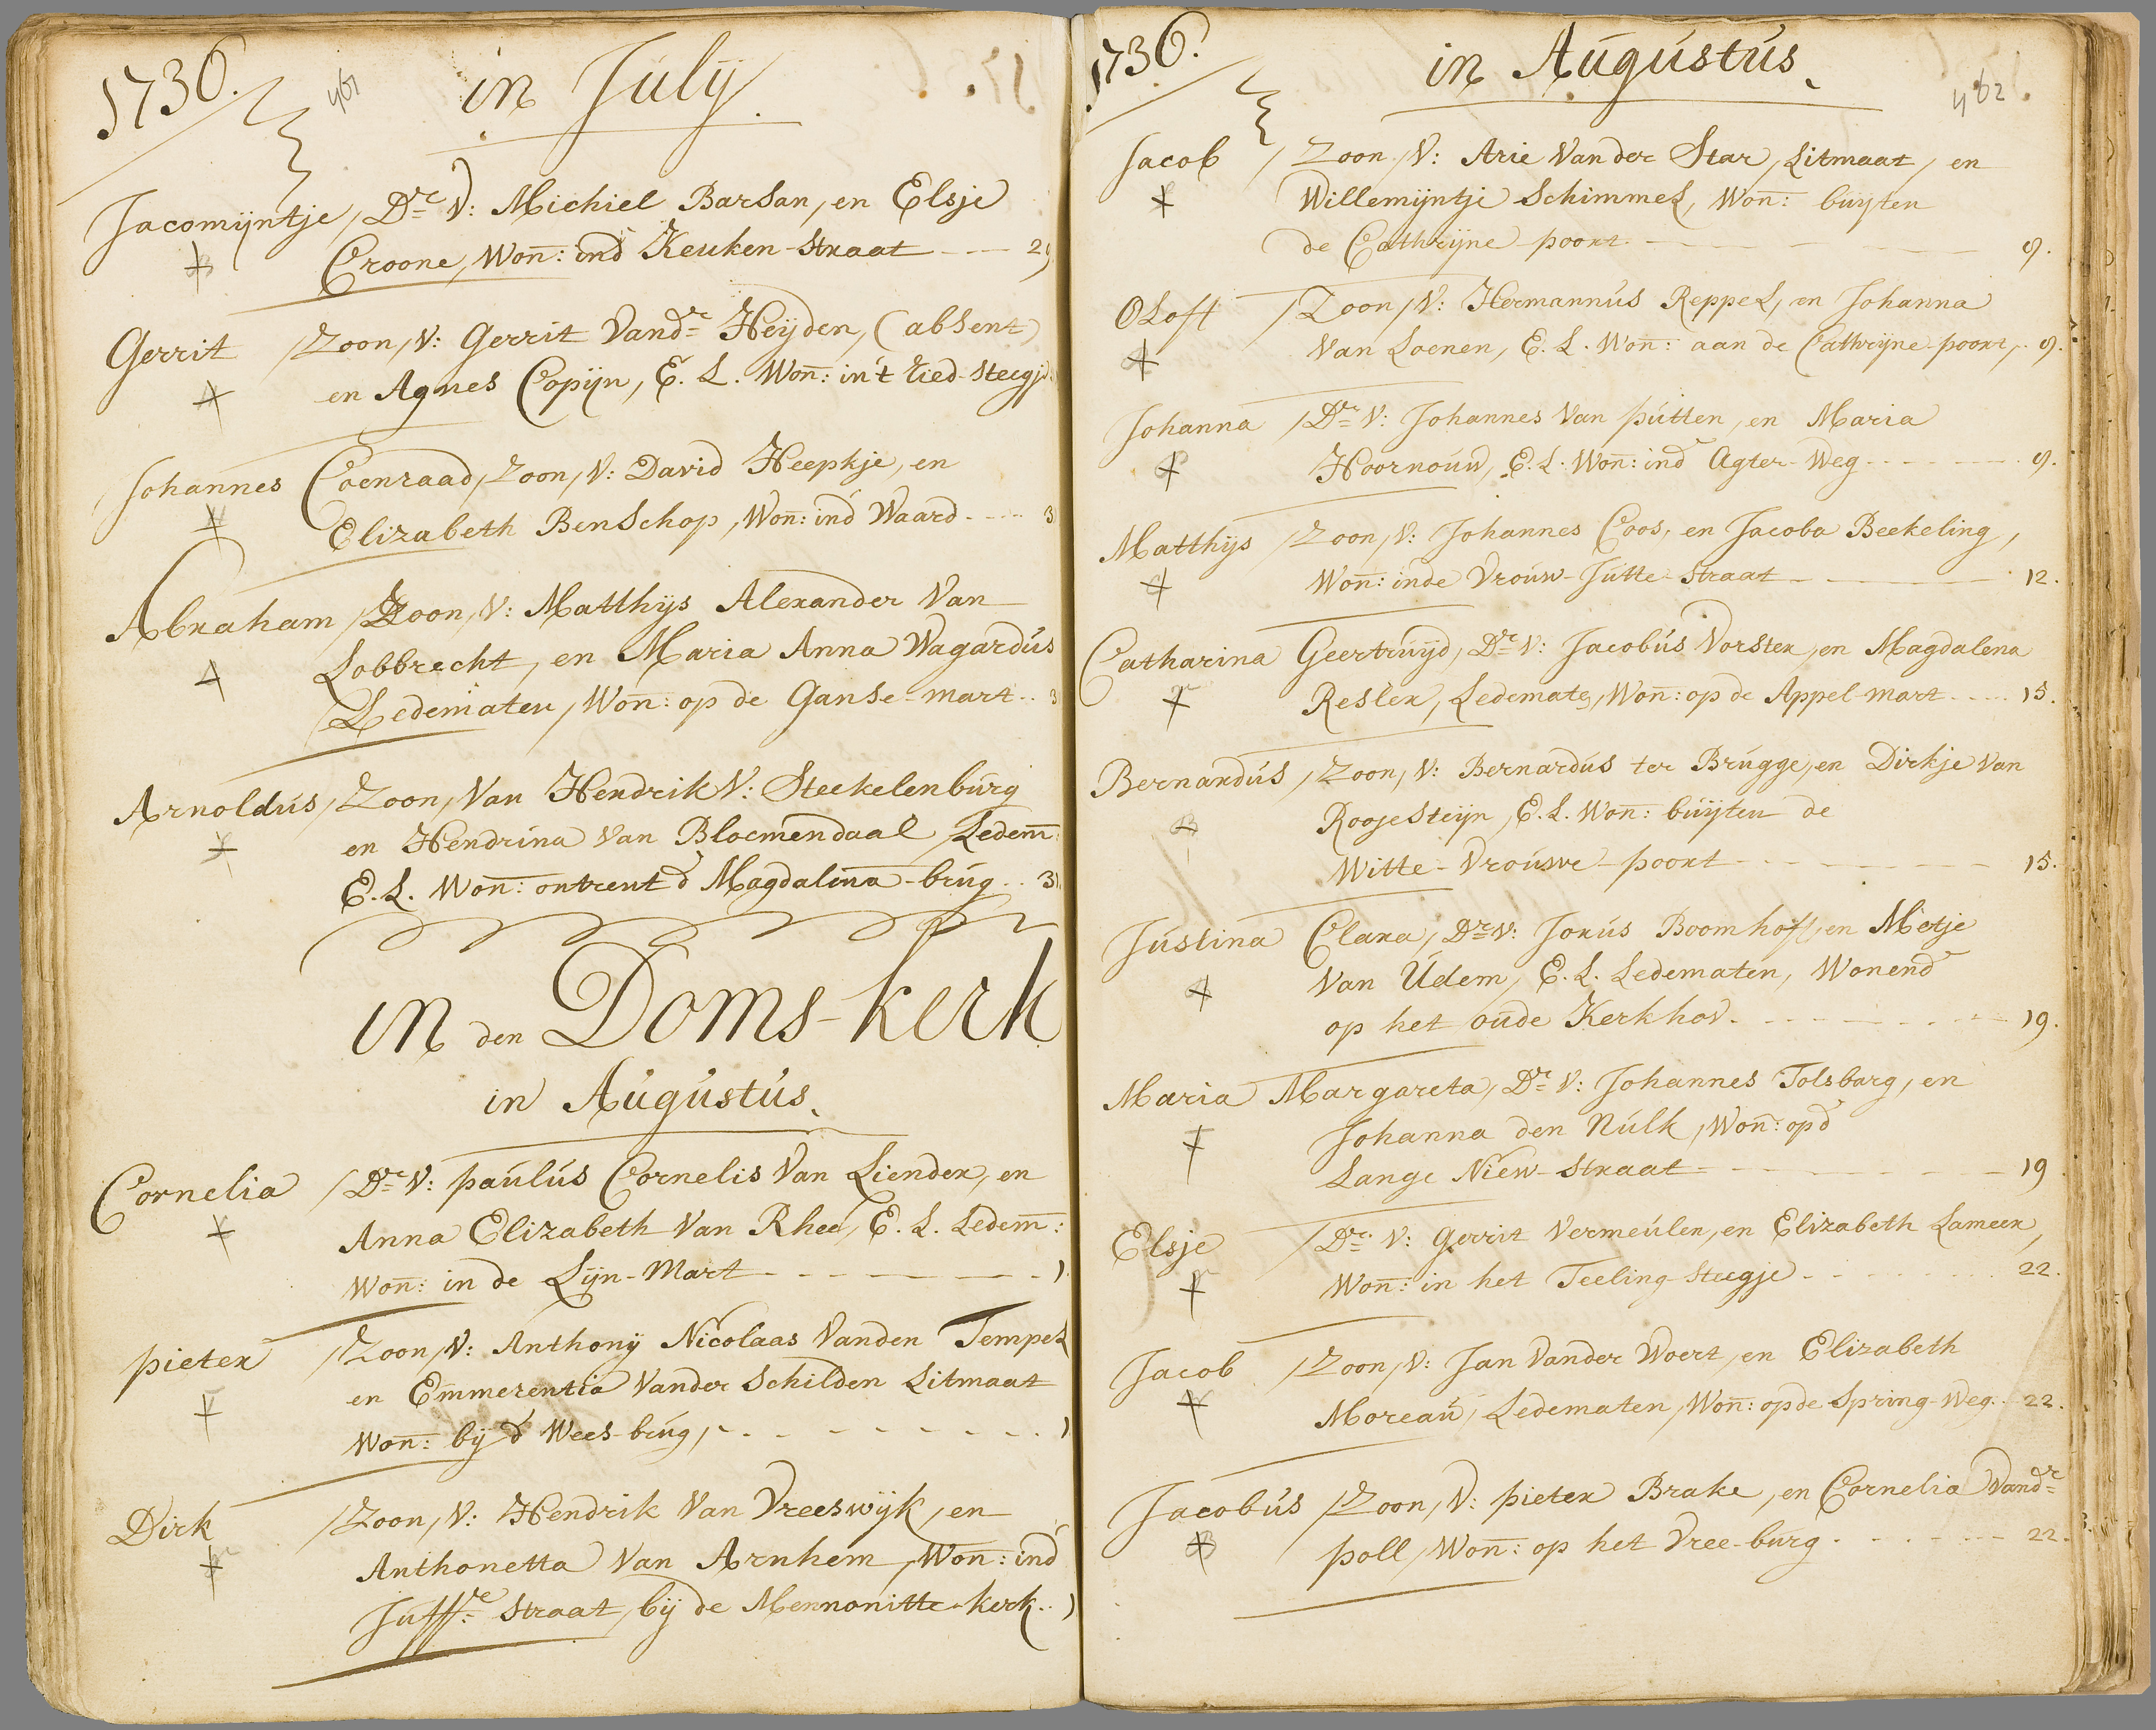 1736. 461 in Julÿ.
Jacomijntje, Dr V: Michiel Barsan, en Elsje
Croone, Won: ind Keuken-straat 29
Gerrit Zoon, V: Gerrit Vandr Heÿden, (absent)
en Agnes Copijn, E. L. Won: in't ried-steegje
Johannes Coenraad, Zoon, V: David Heepkje, en
Elizabeth Benschop, Won: ind Waard 3
Abraham Zoon, V: Matthijs Alexander Van
Lobbrecht, en Maria Anna Wagardus
Ledematen, Won: op de Ganse-mart 3
Arnoldus, Zoon, Van Hendrik V: Steekelenburg
en Hendrina Van Bloemendaal, Ledem:
E. L. Won: ontrent d Magdalena-brug 31
in den Doms-kerk
in Augustus.
Cornelia Dr V: paulus Cornelis Van Liender, en
Anna Elizabeth Van Rhee, E. L. Ledem:
Won: in de Lijn-Mart 1
pieter Zoon, V: Anthonÿ Nicolaas Vanden Tempel
en Emmerentia Vander Schilden Litmaat
Won: bij d Wees-brug, 1
Dirk Zoon, V: Hendrik Van Vreeswijk, en
Anthonetta Van Arnhem, Won: ind
Juffre straat, bij de Mennonitte-kerk 1
1736. in Augustus. 462
Jacob Zoon, V: Arie Vander Star, Litmaat, en
Willemijntje Schimmel, Won: buijten
de Cathrijne-poort 9.
Oloff Zoon, V: Hermannus Reppel, en Johanna
Van Loenen, E. L. Won: aan de Cathrijne-poort, 9.
Johanna Dr V: Johannes Van putten, en Maria
Hoornouw, E. L. Won: ind Agter-Weg 9.
Matthijs Zoon, V: Johannes Coos, en Jacoba Beekeling,
Won: inde Vrouw-Jutte-straat 12.
Catharina Geertruijd, Dr V: Jacobus Vorster, en Magdalena
Resler, Ledemate, Won: op de Appel-mart 15.
Bernardus, Zoon, V: Bernardus ter Brugge, en Dirkje Van
Roojesteijn, E. L. Won: buijten de
Witte-Vrouwe-poort 15.
Justina Clara, Dr V: Jorus Boomhoff, en Metje
Van Udem, E. L. Ledematen, Wonend
op het oude Kerkhov 19.
Maria Margareta, Dr V: Johannes Tolsbarg, en
Johanna den Nulk, Won: opd
Lange Niew-straat 19
Elsje Dr V: Gerrit Vermeulen, en Elizabeth Lameer,
Won: in het Teeling-steegje 22.
Jacob Zoon, V: Jan Vander Woert, en Elizabeth
Moreau, Ledematen, Won: opde Spring-Weg 22.
Jacobus Zoon, V: pieter Brake, en Cornelia Vandr
poll, Won: op het Vree-burg 22.